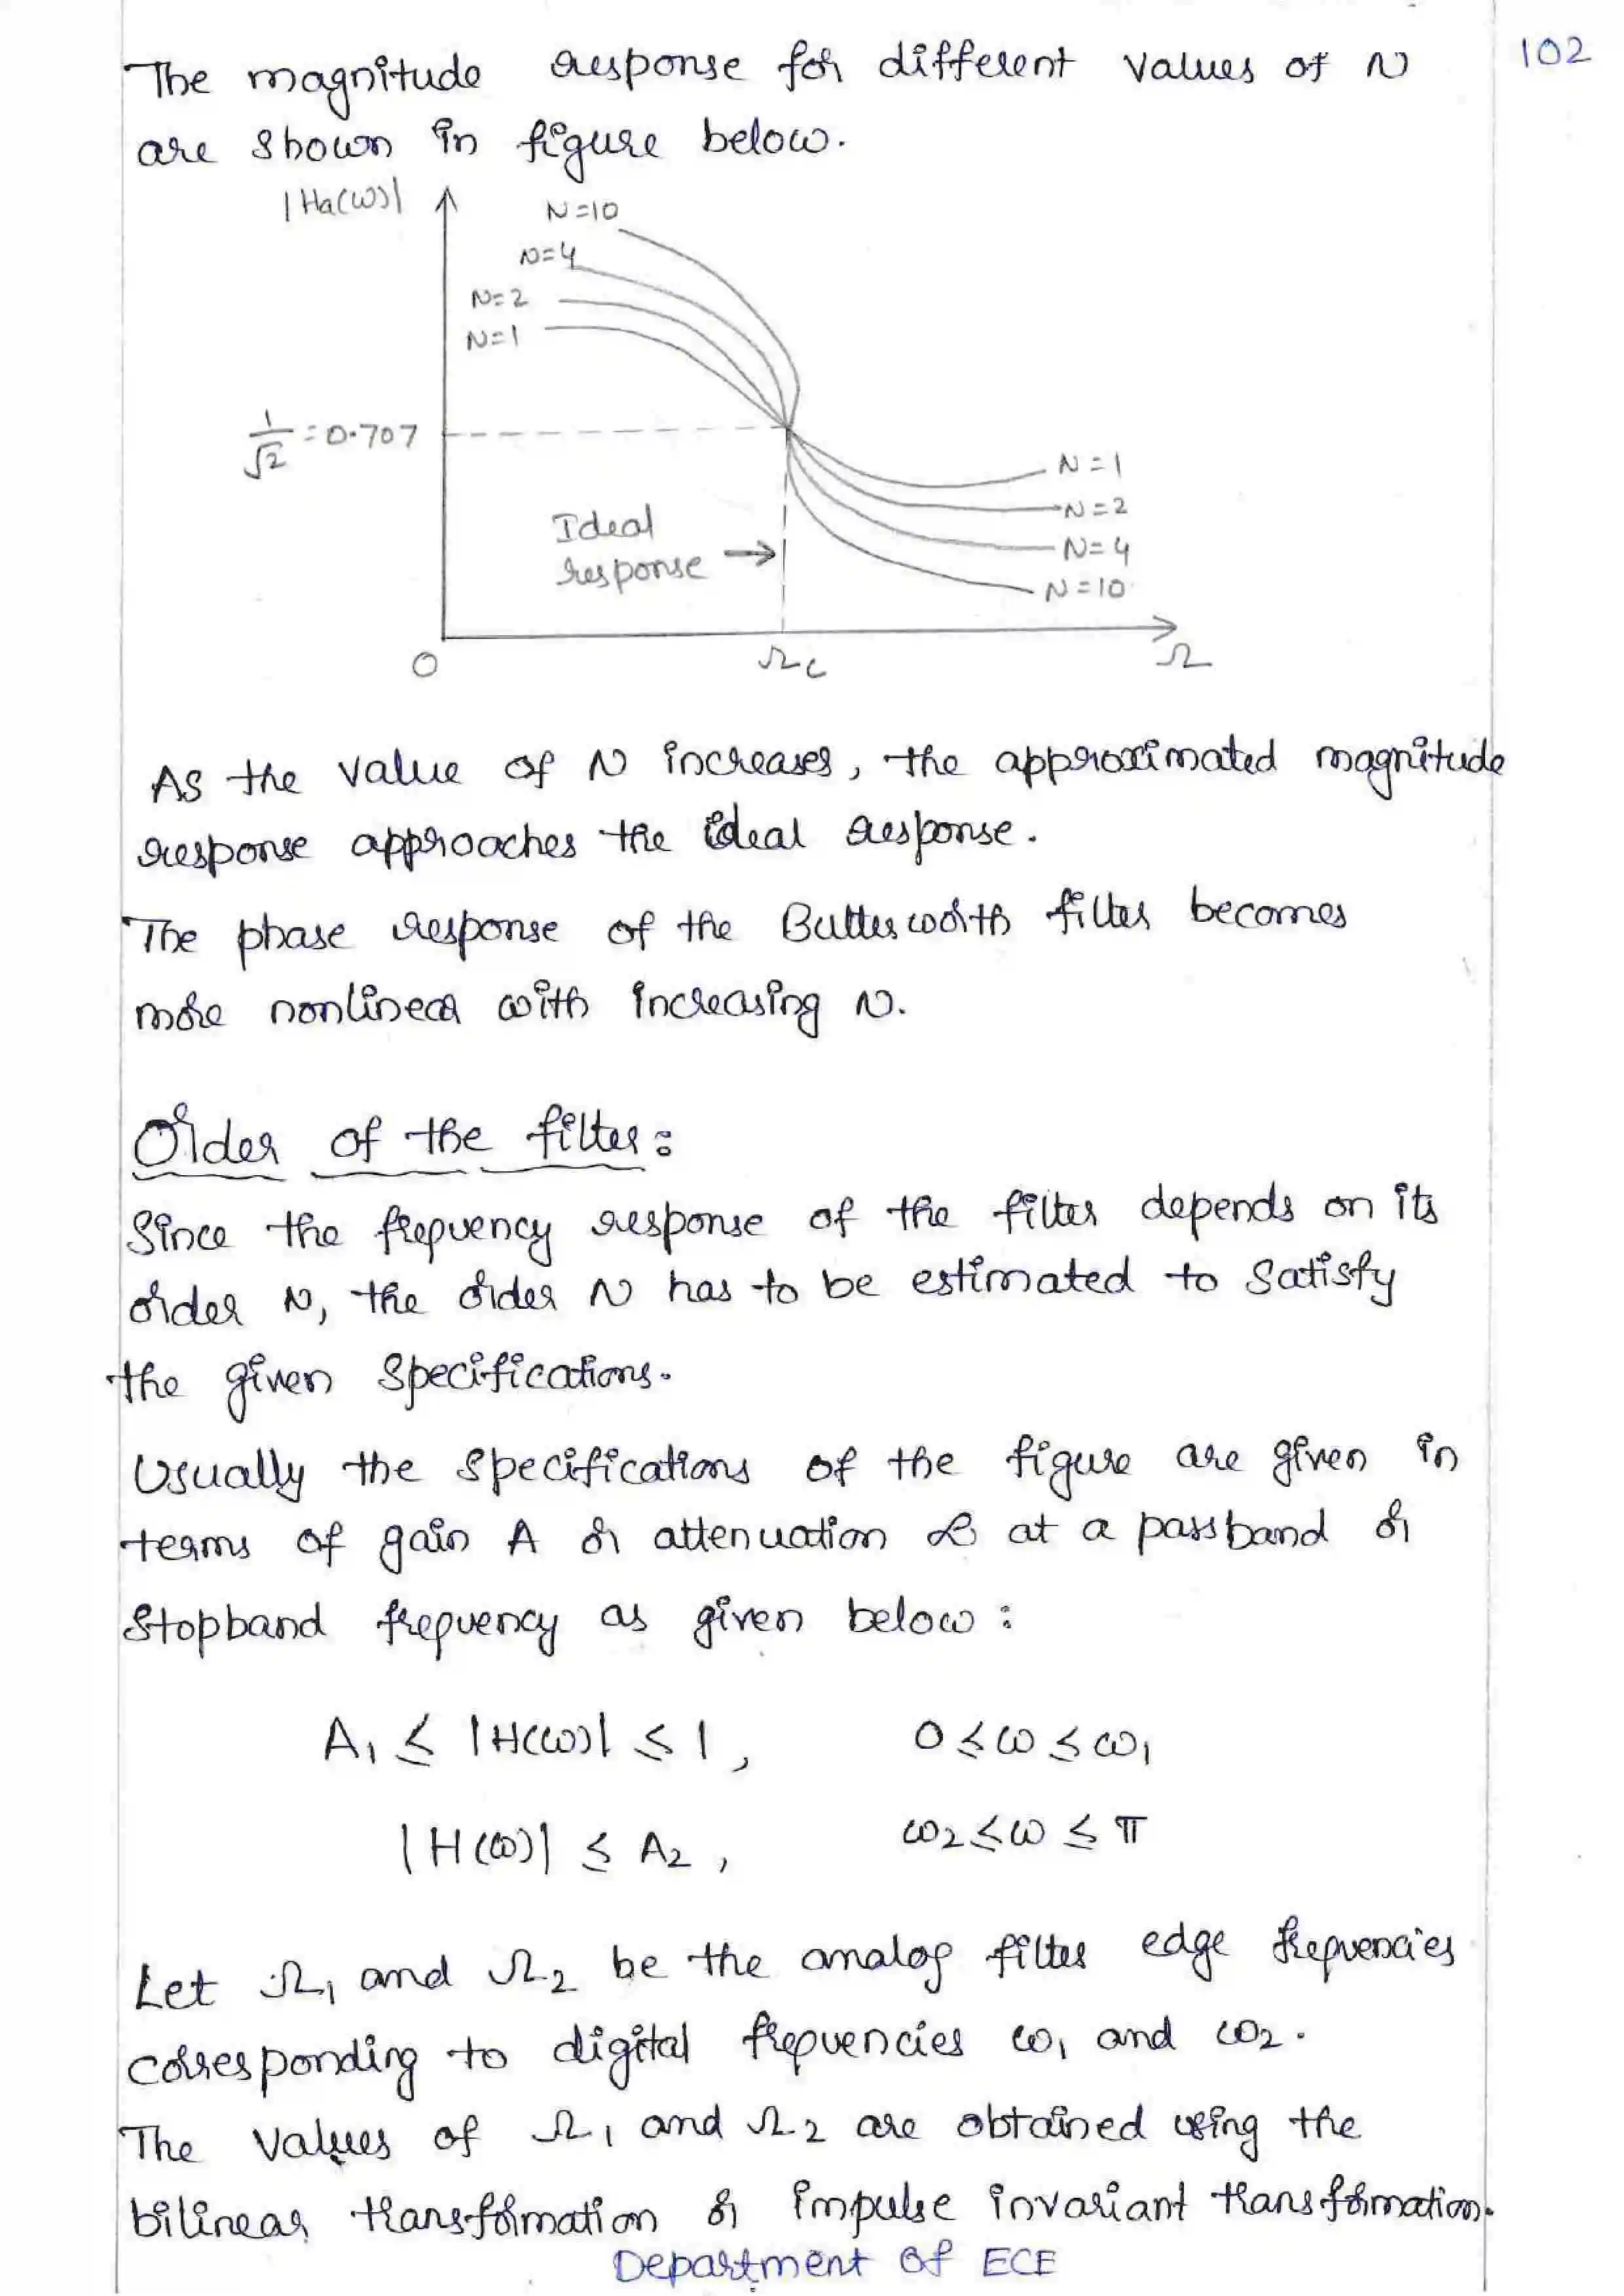 The magnitude response for different values of N
102
are shown in figure below.
|Ha(ω)|
N=10
N=4
N=2
N=1
1/√2 = 0.707
N=1
N=2
N=4
N=10
Ideal
response →
0
Ωc
Ω
As the value of N increases, the approximated magnitude
response approaches the ideal response.
The phase response of the Butterworth filter becomes
more nonlinear with increasing N.
Order of the filter:
Since the frequency response of the filter depends on its
order N, the order N has to be estimated to satisfy
the given specifications.
Usually the specifications of the figure are given in
terms of gain A or attenuation α at a passband or
stopband frequency as given below:
A₁ ≤ |H(ω)| ≤ 1, 0 ≤ ω ≤ ω₁
|H(ω)| ≤ A₂, ω₂ ≤ ω ≤ π
Let Ω₁ and Ω₂ be the analog filter edge frequencies
corresponding to digital frequencies ω₁ and ω₂.
The values of Ω₁ and Ω₂ are obtained using the
bilinear transformation or impulse invariant transformation.
Department of ECE